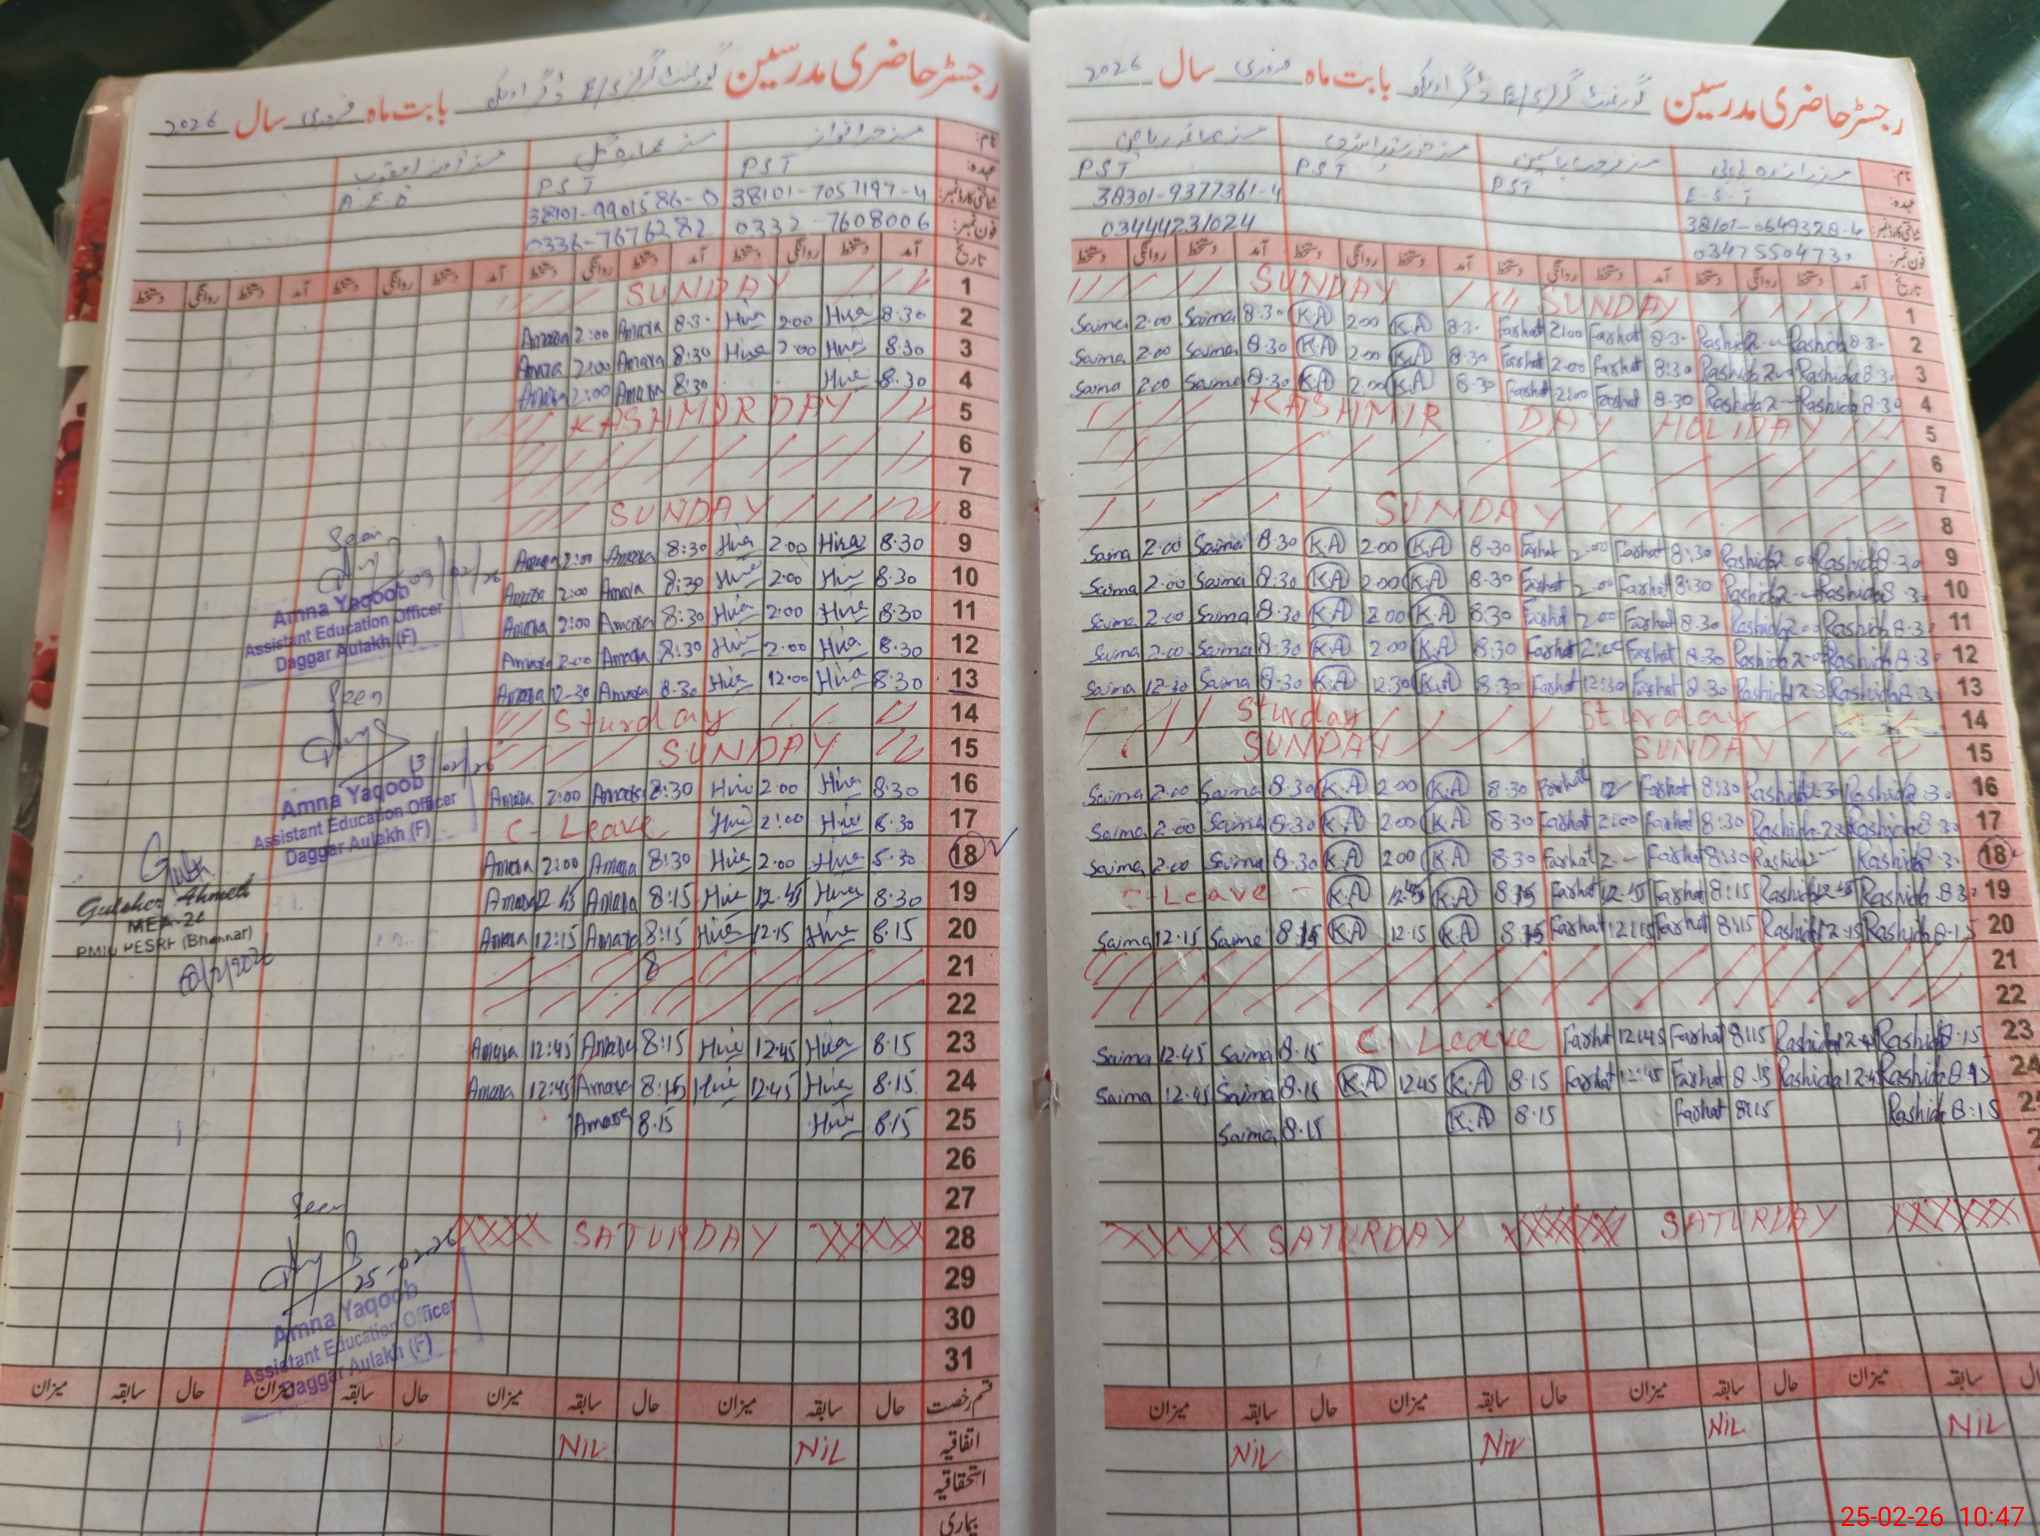 رجسٹر حاضری مدرسین گورنمنٹ گرلز بابت ماہ فروری سال 2026
نام:
عہدہ: PST PST A E O
شناختی کارڈ نمبر: 38101-7057197-4 38101-9901586-0
فون نمبر: 0332-7608006 0336-7676282
تاریخ آمد دستخط روانگی دستخط آمد دستخط روانگی دستخط آمد دستخط روانگی دستخط آمد دستخط روانگی دستخط
SUNDAY 1
Amara 2:00 Amara 8:30 Hira 2:00 Hira 8:30 2
Amara 2:00 Amara 8:30 Hira 2:00 Hira 8:30 3
Amara 2:00 Amara 8:30 Hira 8:30 4
KASHMIR DAY 5
6
7
SUNDAY 8
Seen
09/02/26
Amna Yaqoob
Assistant Education Officer
Daggar Aulakh (F)
Amara 2:00 Amara 8:30 Hira 2:00 Hira 8:30 9
Amara 2:00 Amara 8:30 Hira 2:00 Hira 8:30 10
Amara 2:00 Amara 8:30 Hira 2:00 Hira 8:30 11
Amara 2:00 Amara 8:30 Hira 2:00 Hira 8:30 12
Amara 12-30 Amara 8:30 Hira 12:00 Hira 8:30 13
Seen
13/02/26
Amna Yaqoob
Assistant Education Officer
Daggar Aulakh (F)
Sturday 14
SUNDAY 15
Amara 2:00 Amara 8:30 Hira 2:00 Hira 8:30 16
C - Leave Hira 2:00 Hira 8:30 17
Amara 2:00 Amara 8:30 Hira 2:00 Hira 8:30 18
Amara 12:45 Amara 8:15 Hira 12.45 Hira 8:30 19
Amara 12:15 Amara 8:15 Hira 12.15 Hira 8.15 20
Gulsher Ahmed
MEA-24
(Bhakkar)
8 21
22
Amara 12:45 Amara 8:15 Hira 12:45 Hira 8.15 23
Amara 12:45 Amara 8:15 Hira 12:45 Hira 8.15 24
Amara 8.15 Hira 8.15 25
26
27
SATURDAY 28
29
30
31
Seen
25-02-26
Amna Yaqoob
Assistant Education Officer
Daggar Aulakh (F)
قسم رخصت حال سابقہ میزان حال سابقہ میزان حال سابقہ میزان حال سابقہ میزان
اتفاقیہ NIL NIL
استحقاقیہ
بیماری
رجسٹر حاضری مدرسین گورنمنٹ گرلز بابت ماہ فروری سال 2026
نام:
عہدہ: E.S.T PST PST PST
شناختی کارڈ نمبر: 38101-0649328-4 38301-9377361-4
فون نمبر: 03444231024
تاریخ آمد دستخط روانگی دستخط آمد دستخط روانگی دستخط آمد دستخط روانگی دستخط آمد دستخط روانگی دستخط
SUNDAY SUNDAY 1
Saima 2:00 Saima 8:30 K.A 2:00 K.A 8:30 Farhat 2:00 Farhat 8:30 Rashida 2 Rashida 8:30 2
Saima 2:00 Saima 8:30 K.A 2:00 K.A 8:30 Farhat 2:00 Farhat 8:30 Rashida 2 Rashida 8:30 3
Saima 2:00 Saima 8:30 K.A 2:00 K.A 8:30 Farhat 2:00 Farhat 8:30 Rashida 2 Rashida 8:30 4
KASHMIR DAY HOLIDAY 5
6
7
SUNDAY 8
Saima 2:00 Saima 8:30 K.A 2:00 K.A 8:30 Farhat 2:00 Farhat 8:30 Rashida 2:00 Rashida 8:30 9
Saima 2:00 Saima 8:30 K.A 2:00 K.A 8:30 Farhat 2:00 Farhat 8:30 Rashida 2 Rashida 8:30 10
Saima 2:00 Saima 8:30 K.A 2:00 K.A 8:30 Farhat 2:00 Farhat 8:30 Rashida 2:00 Rashida 8:30 11
Saima 2:00 Saima 8:30 K.A 2:00 K.A 8:30 Farhat 2:00 Farhat 8:30 Rashida 2:00 Rashida 8:30 12
Saima 12:30 Saima 8:30 K.A 12:30 K.A 8:30 Farhat 12:30 Farhat 8:30 Rashida 12:3 Rashida 8:30 13
Sturday Sturday 14
SUNDAY SUNDAY 15
Saima 2:00 Saima 8:30 K.A 2:00 K.A 8:30 Farhat Farhat 8:30 Rashida Rashida 16
Saima 2:00 Saima 8:30 K.A 2:00 K.A 8:30 Farhat 2:00 Farhat 8:30 Rashida Rashida 8:30 17
Saima 2:00 Saima 8:30 K.A 2:00 K.A 8:30 Farhat 2 Farhat 8:30 Rashida 2 Rashida 8:30 18
C - Leave - K.A 12:45 K.A 8:15 Farhat 12:45 Farhat 8:15 Rashida 12:45 Rashida 8:30 19
Saima 12.15 Saima 8:15 K.A 12.15 K.A 8:15 Farhat 12:15 Farhat 8:15 Rashida 12:15 Rashida 8:15 20
21
22
Saima 12.45 Saima 8.15 C. Leave Farhat 12:45 Farhat 8:15 Rashida 12:4 Rashida 8:15 23
Saima 12.45 Saima 8.15 K.A 12:45 K.A 8:15 Farhat 12:45 Farhat 8:15 Rashida 12:45 Rashida 8:15 24
Saima 8.15 K.A 8:15 Farhat 8:15 Rashida 8:15 25
SATURDAY SATURDAY
حال سابقہ میزان حال سابقہ میزان حال سابقہ میزان حال سابقہ میزان
NIL NIL NIL NIL
25-02-26 10:47